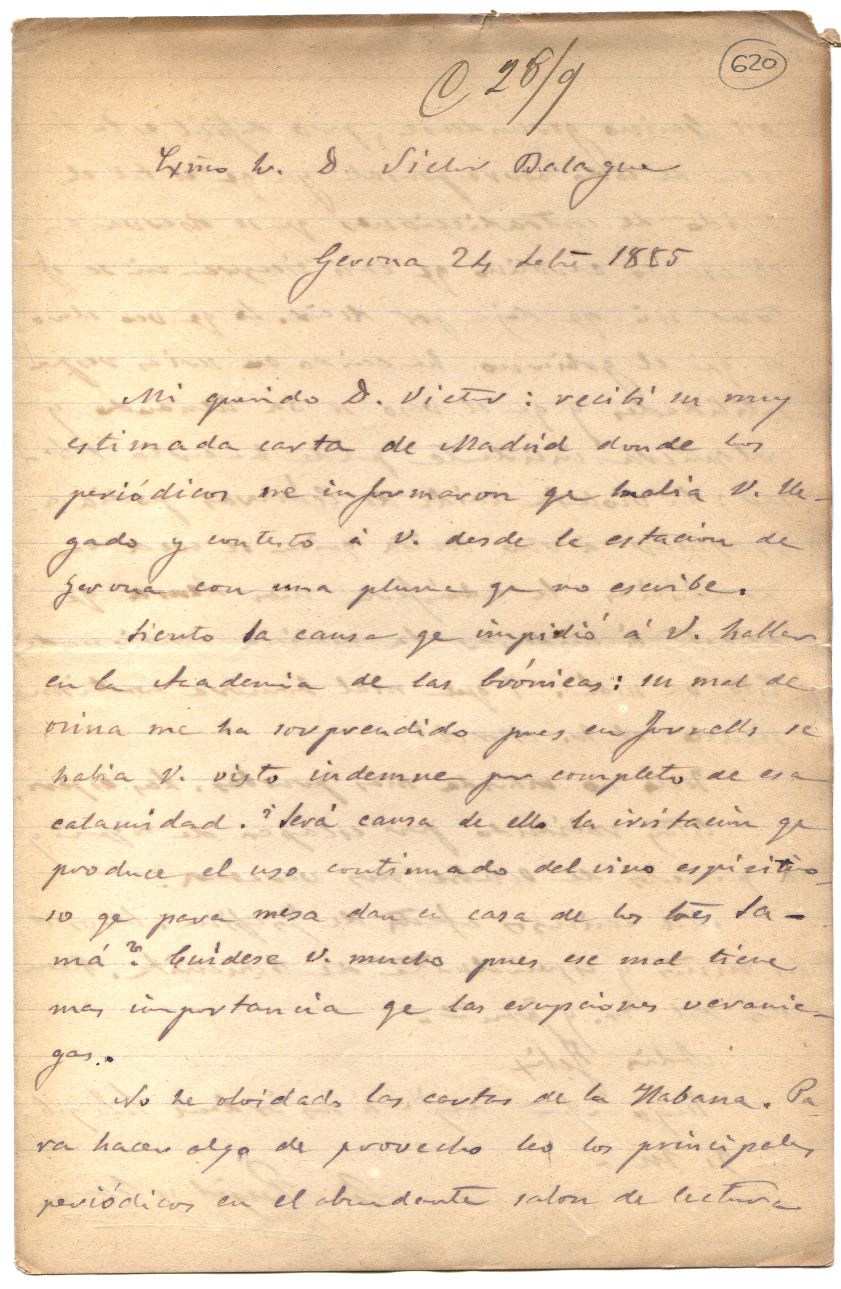 620
C 28/9
Exmo Sr. D Victor Balaguer
Gerona 24 Setre 1885
Mi querido D. Victor: recibí su muy
estimada carta de Madrid donde los
periódicos me informaron qe habia V. lle-
gado y contesto á V. desde la estacion de
Gerona con una pluma qe no escribe.
Siento la causa qe impidió á V. hallarse
en la Academia de las Crónicas: su mal de
orina me ha sorprendido pues en Fornells se
habia V. visto indemne por completo de esa
calamidad. ? Será causa de ello la irritacion qe
produce el uso continuado del vino espiritio-
so qe para mesa dan en casa de los tres Sa-
má? Cuídese V. mucho pues ese mal tiene
mas importancia qe las erupciones veranie-
gas.
No he olvidado las cartas de la Habana. Pa-
ra hacer algo de provecho leo los principales
periódicos en el abundante salon de lectura